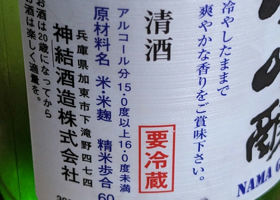 冷やしたままで
爽やかな香りをご賞味下さい。
清酒
要冷蔵
アルコール分15.0度以上16.0度未満
原材料名 米・米麹 精米歩合 60
兵庫県加東市下滝野四七四
神結酒造株式会社
お酒は20歳になってから
お酒は楽しく適量を。
NAMA